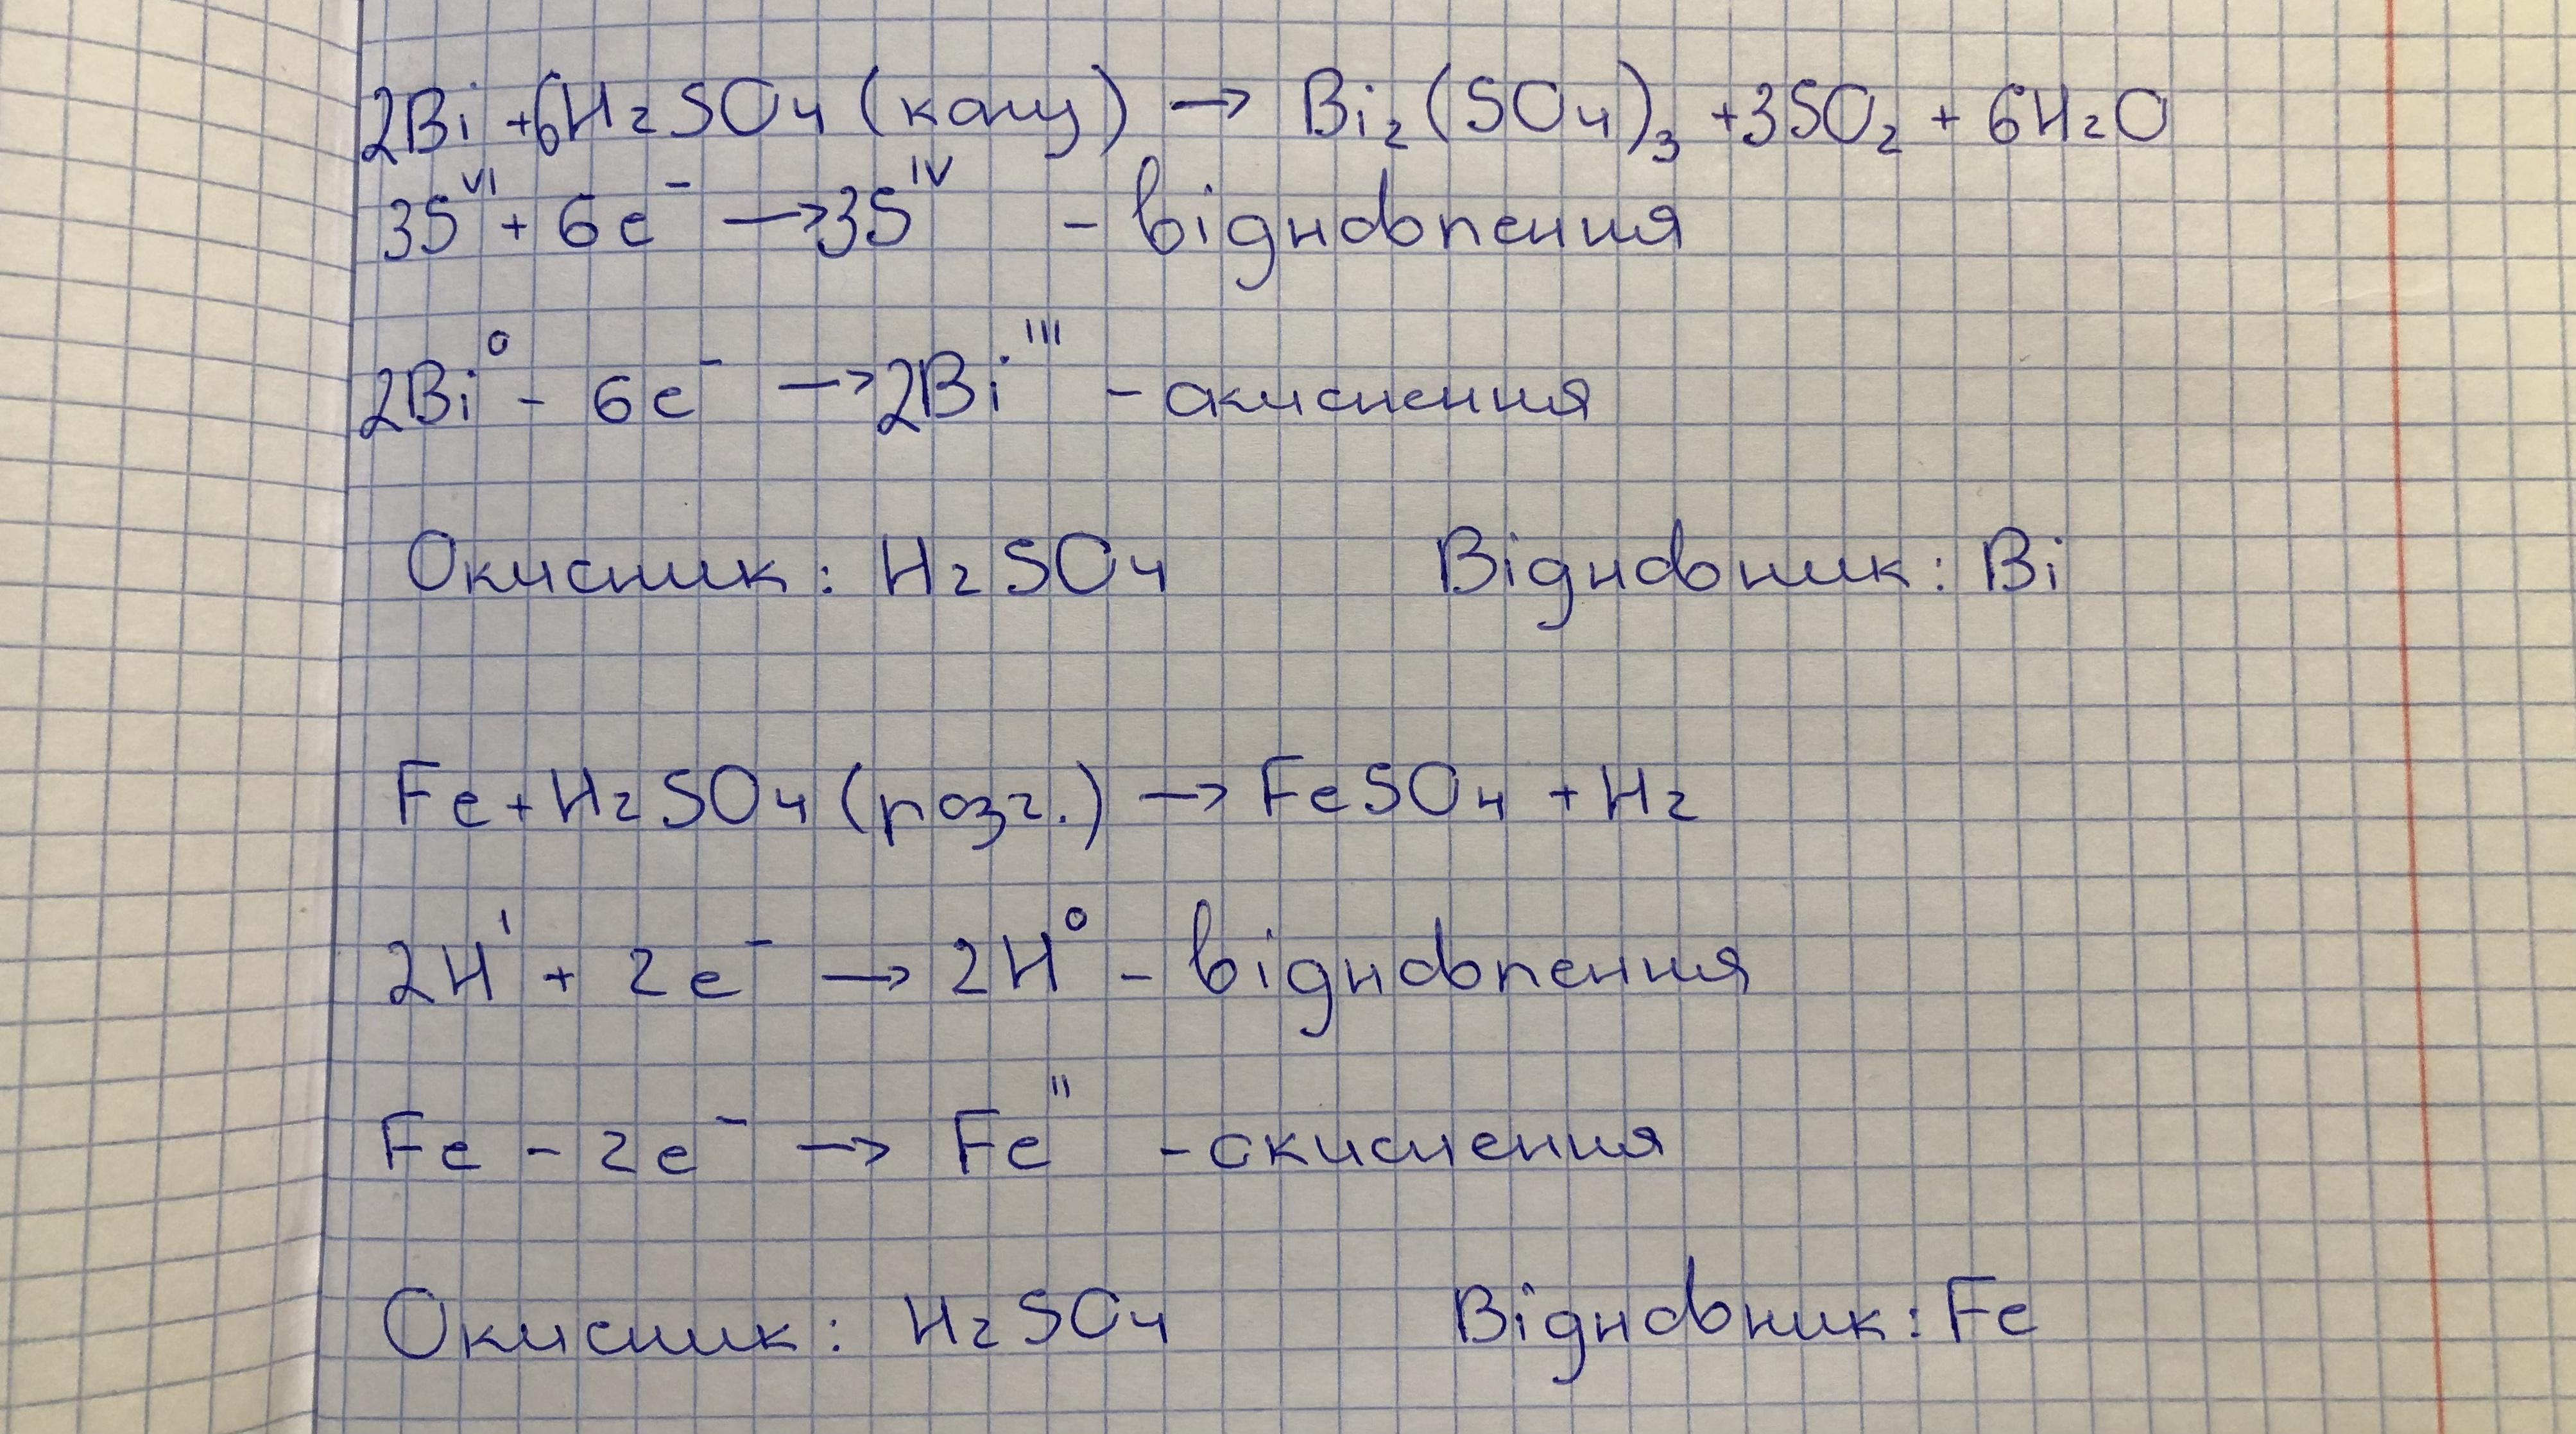 2Bi + 6H₂SO₄ (конц) → Bi₂(SO₄)₃ + 3SO₂ + 6H₂O
3S^VI + 6e⁻ → 3S^IV - відновлення
2Bi⁰ - 6e⁻ → 2Bi^III - окиснення
Окисник: H₂SO₄ Відновник: Bi
Fe + H₂SO₄ (розг.) → FeSO₄ + H₂
2H^I + 2e⁻ → 2H⁰ - відновлення
Fe - 2e⁻ → Fe^II - окиснення
Окисник: H₂SO₄ Відновник: Fe